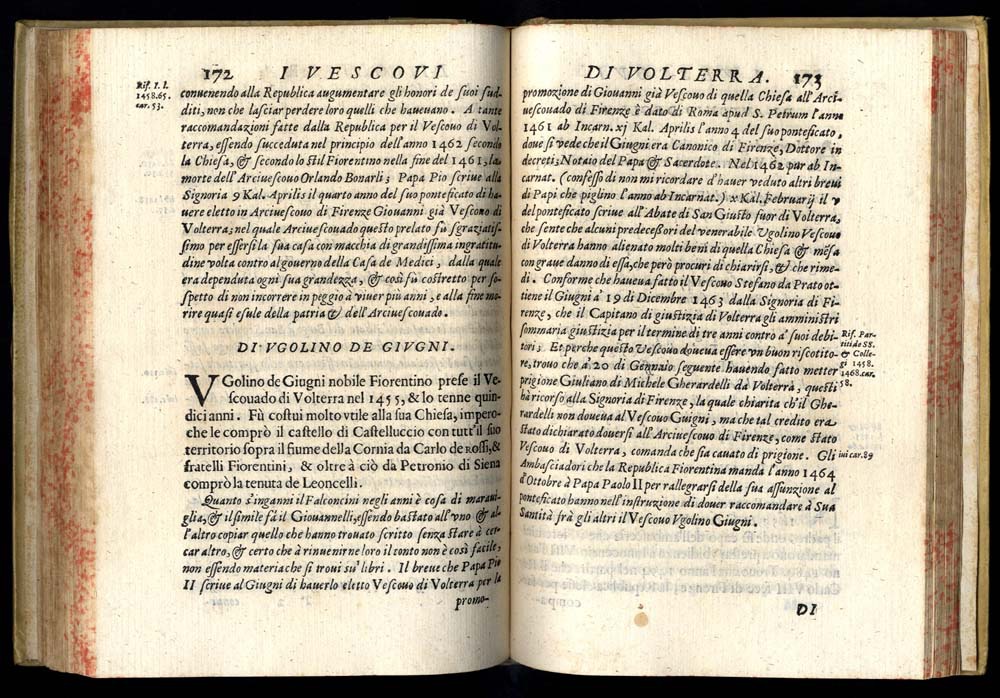 172 I VESCOVI
Rif. I. l.
1458.65.
car. 53.
convenendo alla Republica augumentare gli honori de suoi sud-
diti, non che lasciar perdere loro quelli che havevano. A tante
raccomandazioni fatte dalla Republica per il Vescovo di Vol-
terra, essendo succeduta nel principio dell'anno 1462 secondo
la Chiesa, & secondo lo stil Fiorentino nella fine del 1461, la
morte dell'Arcivescovo Orlando Bonarli; Papa Pio scrive alla
Signoria 9 Kal. Aprilis il quarto anno del suo ponteficato di ha-
vere eletto in Arcivescovo di Firenze Giovanni già Vescovo di
Volterra; nel quale Arcivescovado questo prelato fù sgraziatis-
simo per essersi la sua casa con macchia di grandissima ingratitu-
dine volta contro al governo della Casa de Medici, dalla quale
era dependuta ogni sua grandezza, & così fù costretto per so-
spetto di non incorrere in peggio à viver più anni, e alla fine mo-
rire quasi esule della patria & dell'Arcivescovado.
DI VGOLINO DE GIVGNI.
VGolino de Giugni nobile Fiorentino prese il Ve-
scouado di Volterra nel 1455, & lo tenne quin-
dici anni. Fù costui molto vtile alla sua Chiesa, impero-
che le comprò il castello di Castelluccio con tutt'il suo
territorio sopra il fiume della Cornia da Carlo de Rossi, &
fratelli Fiorentini, & oltre à ciò da Petronio di Siena
comprò la tenuta de Leoncelli.
Quanto s'inganni il Falconcini negli anni è cosa di maravi-
glia, & il simile fà il Giovannelli, essendo bastato all'vno & al-
l'altro copiar quello che hanno trovato scritto senza stare à cer-
car altro, & certo che à rinvenirne loro il conto non è così facile,
non essendo materia che si trovi su' libri. Il breve che Papa Pio
II scrive al Giugni di haverlo eletto Vescovo di Volterra per la
promo-
DI VOLTERRA. 173
promozione di Giovanni già Vescovo di quella Chiesa all'Arci-
vescovado di Firenze è dato di Roma apud S. Petrum l'anno
1461 ab Incarn. xj Kal. Aprilis l'anno 4 del suo ponteficato,
dove si vede che il Giugni era Canonico di Firenze, Dottore in
decreti, Notaio del Papa & Sacerdote. Nel 1462 pur ab In-
carnat. (confesso di non mi ricordare d'haver veduto altri brevi
di Papi che piglino l'anno ab Incarnat.) x Kal. Februarij il v
del ponteficato scrive all'Abate di San Giusto fuor di Volterra,
che sente che alcuni predecessori del venerabile Vgolino Vescovo
di Volterra hanno alienato molti beni di quella Chiesa & mẽsa
con grave danno di essa, che però procuri di chiarirsi, & che rime-
di. Conforme che haveva fatto il Vescovo Stefano da Prato ot-
tiene il Giugni à 19 di Dicembre 1463 dalla Signoria di Fi-
renze, che il Capitano di giustizia di Volterra gli amministri
sommaria giustizia per il termine di tre anni contro a' suoi debi-
tori; Et perche questo Vescovo doveva essere vn buon riscotito-
re, trovo che à 20 di Gennaio seguente havendo fatto metter
prigione Giuliano di Michele Gherardelli da Volterra, questi
hà ricorso alla Signoria di Firenze, la quale chiarita ch'il Ghe-
rardelli non doveva al Vescovo Guigni, ma che tal credito era
stato dichiarato doversi all'Arcivescovo di Firenze, come stato
Vescovo di Volterra, comanda che sia cavato di prigione. Gli
Ambasciadori che la Republica Fiorentina manda l'anno 1464
d'Ottobre à Papa Paolo II per rallegrarsi della sua assunzione al
ponteficato hanno nell'instruzione di dover raccomandare à Sua
Santità frà gli altri il Vescovo Vgolino Giugni.
Rif. Par-
titi de SS.
& Colle-
gi 1458.
1468. car.
58.
ivi car. 89
DI